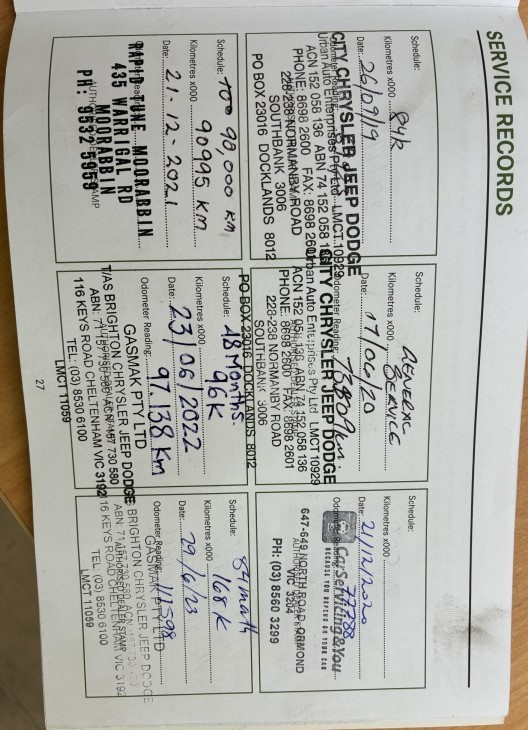 SERVICE RECORDS
Schedule:
Kilometres x000 84k
Date: 26/09/19
CITY CHRYSLER JEEP DODGE
Urban Auto Enterprises Pty Ltd LMCT 10929
ACN 152 058 136 ABN 74 152 058 136
PHONE: 8698 2600 FAX: 8698 2601
228-238 NORMANBY ROAD
SOUTHBANK 3006
PO BOX 23016 DOCKLANDS 8012
Schedule: GENERAL
Kilometres x000 SERVICE
Date: 17/06/20
Odometer Reading:
CITY CHRYSLER JEEP DODGE
Urban Auto Enterprises Pty Ltd LMCT 10929
ACN 152 058 136 ABN 74 152 058 136
PHONE: 8698 2600 FAX: 8698 2601
228-238 NORMANBY ROAD
SOUTHBANK 3006
PO BOX 23016 DOCKLANDS 8012
Schedule:
Kilometres x000
Date: 21/12/2020
Odometer Reading: 77288
CarServicing4You
BECAUSE YOU DEPEND ON YOUR CAR
647-649 NORTH ROAD, ORMOND
VIC 3204
PH: (03) 8560 3299
Schedule: 90,000 km
Kilometres x000 90995 KM
Date: 21-12-2021
RAPID TUNE MOORABBIN
435 WARRIGAL RD
MOORABBIN
PH: 9532 5959
Schedule: 48 Months
Kilometres x000 96K
Date: 23/06/2022
Odometer Reading: 97.138 km
GASMAK PTY LTD
T/AS BRIGHTON CHRYSLER JEEP DODGE
ABN: 71 157 730 580 ACN: 157 730 580
116 KEYS ROAD CHELTENHAM VIC 3192
TEL: (03) 8530 6100
LMCT 11059
Schedule: 84 math
Kilometres x000 168 K
Date: 29/6/23
Odometer Reading:
GASMAK PTY LTD
BRIGHTON CHRYSLER JEEP DODGE
AUTHORISED DEALER STAMP
116 KEYS ROAD CHELTENHAM VIC 3192
TEL: (03) 8530 6100
LMCT 11059
27